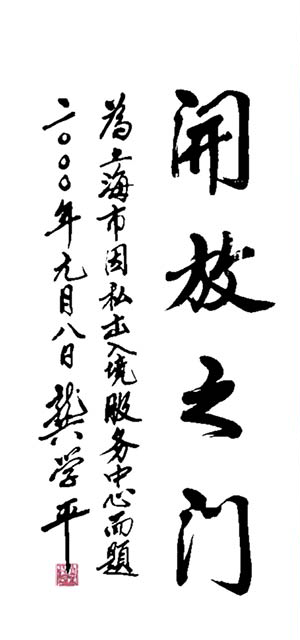 開放之门
為上海市因私出入境服务中心而題
二〇〇〇年元月八日 龔学平